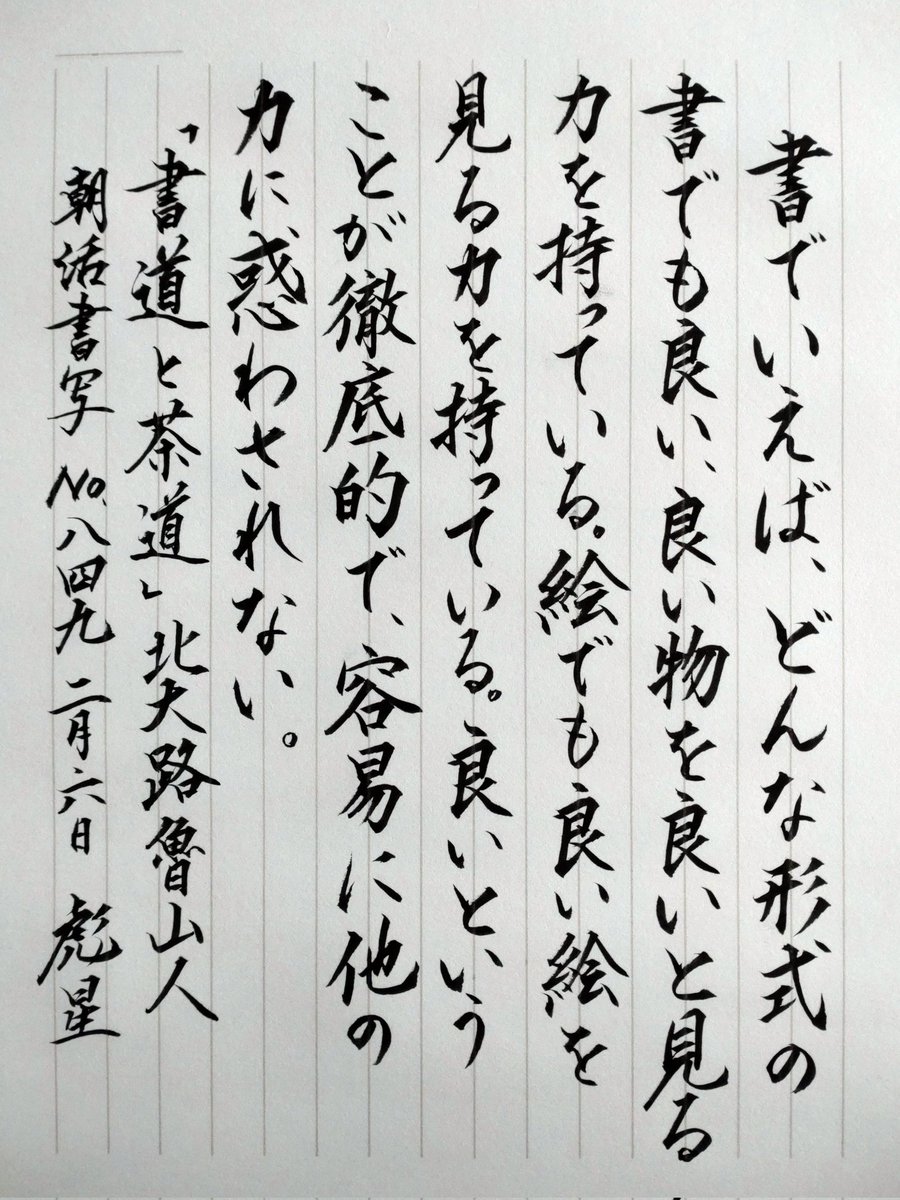 書でいえば、どんな形式の
書でも良い、良い物を良いと見る
力を持っている。絵でも良い絵を
見る力を持っている。良いという
ことが徹底的で、容易に他の
力に惑わされない。
「書道と茶道」北大路魯山人
朝活書写 No.八四九 二月六日 彪星